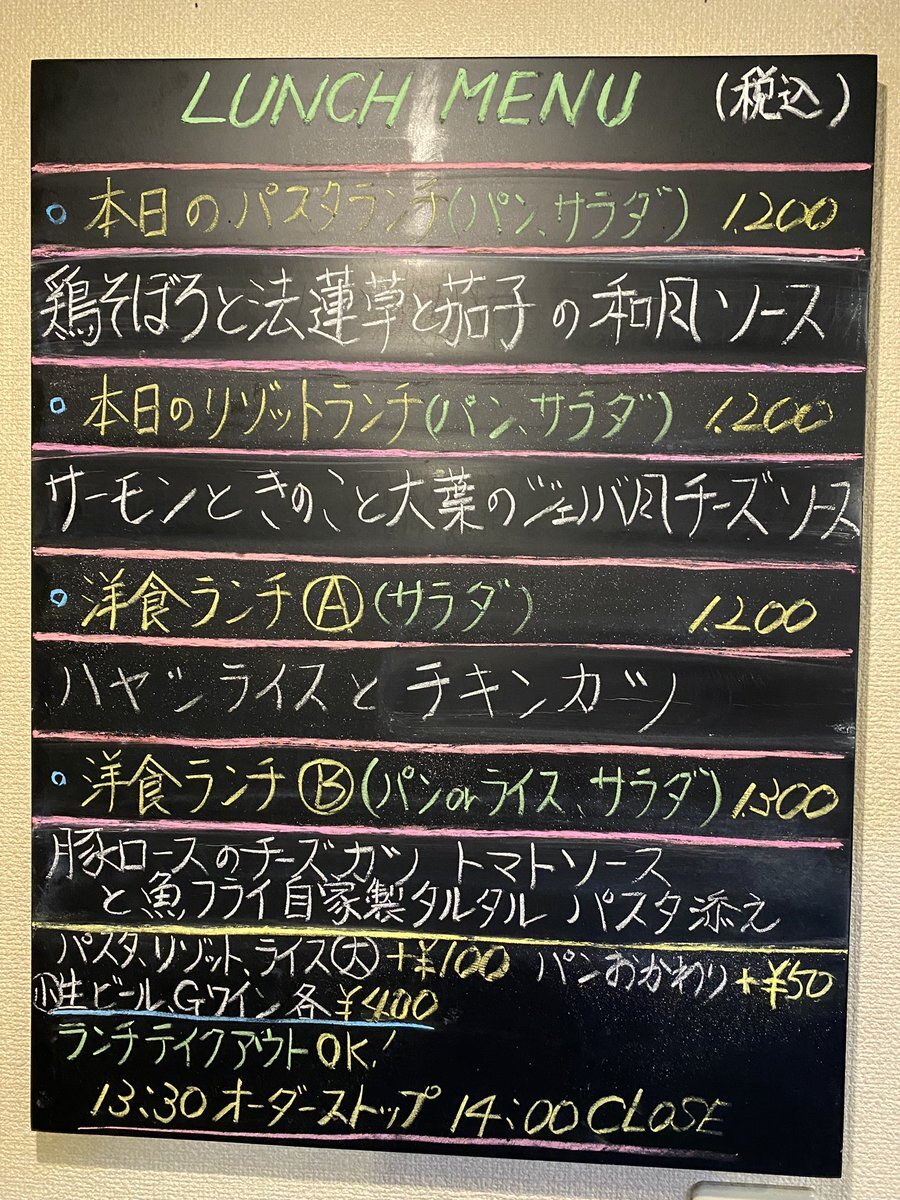 LUNCH MENU (税込)
本日のパスタランチ(パン、サラダ) 1.200
鶏そぼろと法蓮草と茄子の和風ソース
本日のリゾットランチ(パン、サラダ) 1.200
サーモンときのこと大葉のジェノバ風チーズソース
洋食ランチⒶ(サラダ) 1.200
ハヤシライスとチキンカツ
洋食ランチⒷ(パンorライス、サラダ) 1.300
豚ロースのチーズカツ トマトソース
と魚フライ自家製タルタル パスタ添え
パスタ、リゾット、ライス㊛大 +¥100 パンおかわり+¥50
小生ビール、Gワイン各¥400
ランチテイクアウトOK!
13:30オーダーストップ 14:00CLOSE